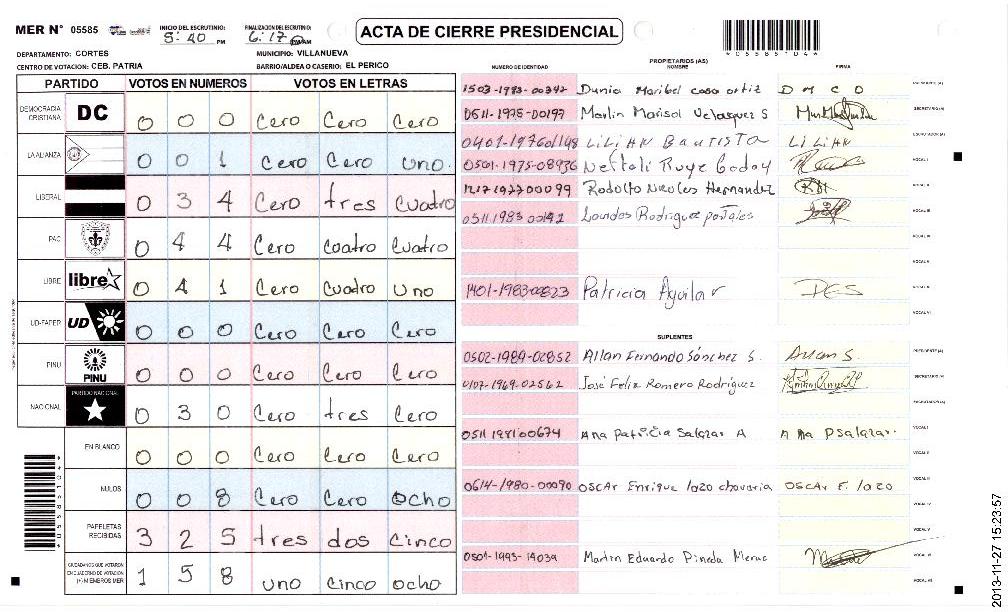 MER N° 05585
INICIO DEL ESCRUTINIO: 5:40 PM
FINALIZACION DEL ESCRUTINIO: 6:17 PM
ACTA DE CIERRE PRESIDENCIAL
DEPARTAMENTO: CORTES
MUNICIPIO: VILLANUEVA
CENTRO DE VOTACION: CEB. PATRIA
BARRIO/ALDEA O CASERIO: EL PERICO
PARTIDO VOTOS EN NUMEROS VOTOS EN LETRAS
DEMOCRACIA CRISTIANA DC 0 0 0 Cero Cero Cero
LA ALIANZA 0 0 1 Cero Cero uno.
LIBERAL 0 3 4 Cero tres Cuatro
PAC 0 4 4 Cero cuatro Cuatro
LIBRE libre 0 4 1 Cero Cuatro Uno
UD-FAPER UD 0 0 0 Cero Cero Cero
PINU PINU 0 0 0 Cero Cero Cero
NACIONAL PARTIDO NACIONAL 0 3 0 Cero tres Cero
EN BLANCO 0 0 0 Cero Cero Cero
NULOS 0 0 8 Cero Cero Ocho
PAPELETAS RECIBIDAS 3 2 5 tres dos Cinco
CIUDADANOS QUE VOTARON EN CUADERNO DE VOTACION (+) MIEMBROS MER 1 5 8 uno Cinco ocho
PROPIETARIOS (AS)
NUMERO DE IDENTIDAD NOMBRE FIRMA
1503-1983-00342 Dunia Maribel casa ortiz D M C O
0511-1975-00197 Marlin Marisol Velasquez S SECRETARIO (A)
0401-197601148 LiLiAN BAutiSTA LiLiAN ESCRUTADOR (A)
0501-1975-08936 Neftali Ruye Goday VOCAL I
1217197700099 Rodolfo Nicolas Hernandez VOCAL II
0511 1983 00142 Lourdes Rodriguez portales VOCAL III
VOCAL IV
VOCAL V
1401-1983-00823 Patricia Aguilar
VOCAL VI
SUPLENTES
0502-1989-02852 Allan Fernando Sánchez S. Allan S. PRESIDENTE (A)
0107-1969-02562 José Felix Romero Rodríguez SECRETARIO (A)
ESCRUTADOR (A)
0511 1981 00674 Ana Patricia Salazar A Ana PSalazar. VOCAL I
VOCAL II
0614-1980-00090 OSCAr Enrique lazo chavarria OSCAr E. lazo VOCAL III
VOCAL IV
VOCAL V
0501-1993-14039 Martin Eduardo Pineda VOCAL VI
VOCAL VII
2013-11-27 15:23:57